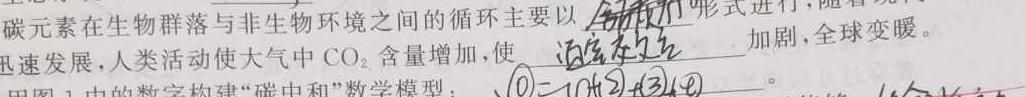 碳元素在生物群落与非生物环境之间的循环主要以 形式进行,随着
迅速发展,人类活动使大气中 CO₂ 含量增加,使 温室效应 加剧,全球变暖。
用图 1 中的数字构建“碳中和”数学模型: ①=②+③+④ 。